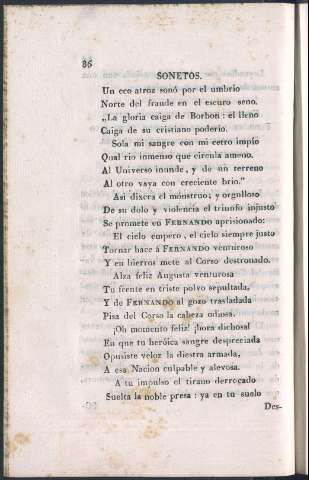 86
SONETOS.
Un eco atroz sonó por el umbrio
Norte del fraude en el escuro seno.
„La gloria caiga de Borbon: el lleno
Caiga de su cristiano poderio.
Sola mi sangre con mi cetro impío
Qual rio inmenso que circula ameno.
Al Universo inunde, y de un terreno
Al otro vaya con creciente brio."
Asi dixera el mónstruo; y orgulloso
De su dolo y violencia el triunfo injusto
Se promete en FERNANDO aprisionado:
El cielo empero, el cielo siempre justo
Tornar hace á FERNANDO venturoso
Y en hierros mete al Corso destronado.
Alza feliz Augusta venturosa
Tu frente en triste polvo sepultada,
Y de FERNANDO al gozo trasladada
Pisa del Corso la cabeza odiosa.
¡Oh momento feliz! ¡hora dichosa!
En que tu heróica sangre despreciada
Opusiste veloz la diestra armada,
A esa Nacion culpable y alevosa.
A tu impulso el tirano derrocado
Suelta la noble presa: ya en tu suelo
Des-